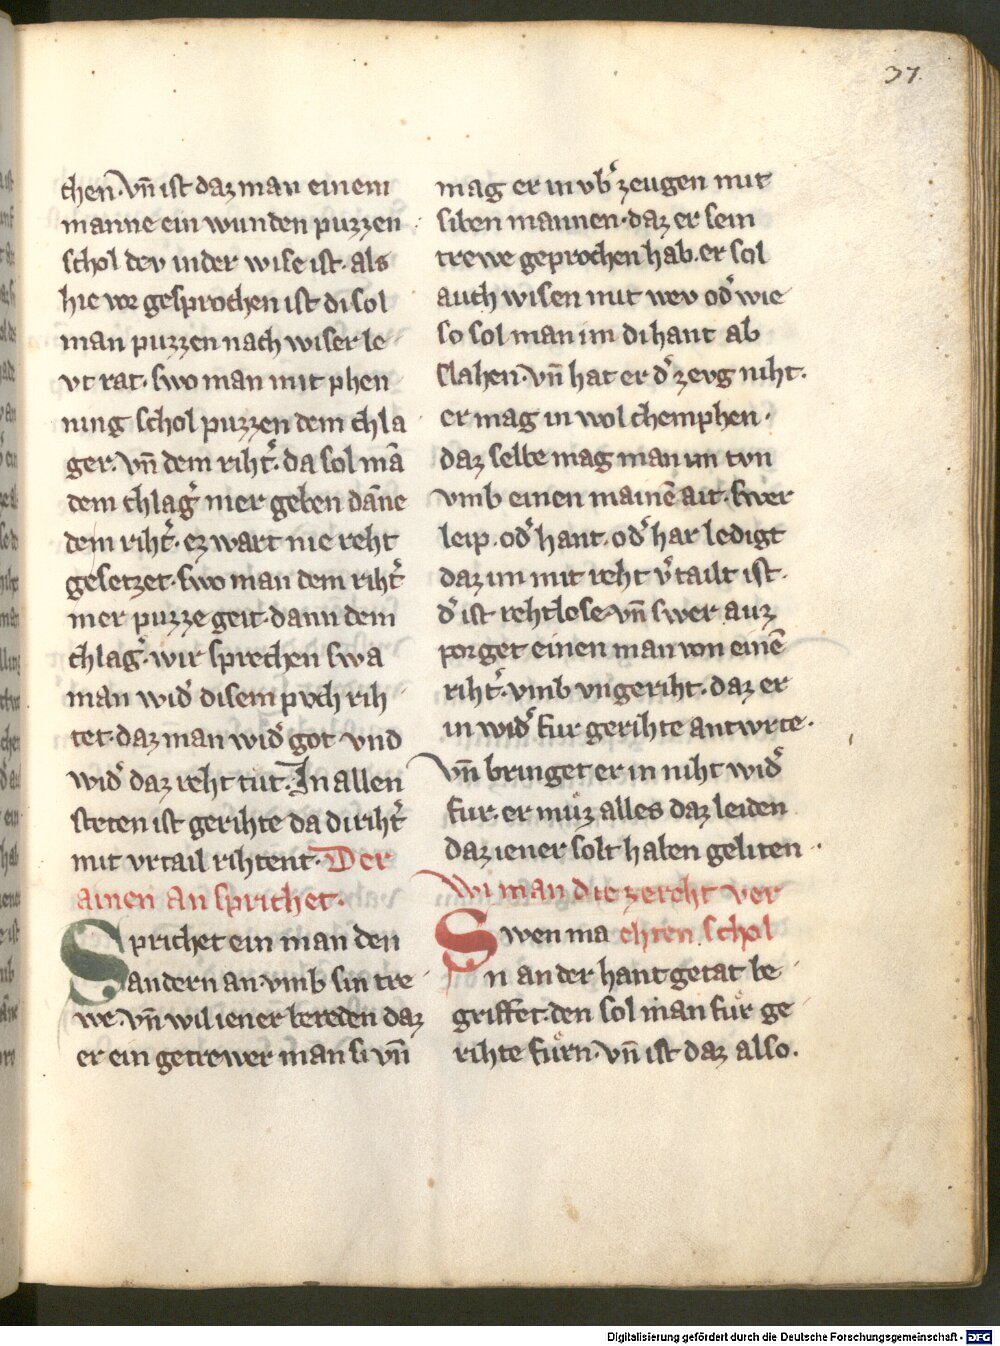 37.
chen. vn̄ ist daz man einem
manne ein wunden puzzen
schol dev in der wise ist. als
hie vor gesprochen ist di sol
man puzzen nach wiser le
vt rat. swo man mit phen
ning schol puzzen dem chla
ger. vn̄ dem riht̕. da sol mā
dem chlag̕ mer geben dāne
dem riht̕. ez wart nie reht
gesetzet. swo man dem riht̕
mer puzze geit. dann dem
chlag̕. wir sprechen swa
man wid̕ disem pvch rih
tet. daz man wid̕ got vnd
wid̕ daz reht tut. In allen
steten ist gerihte da di riht̕
mit vrtail rihtent. Der
ainen an sprichet.
Sprichet ein man den
andern an. vmb sin tre
we. vn̄ wil iener bereden daz
er ein getrewer man si vn̄
mag er in vb̕zeugen mit
siben mannen. daz er sein
trewe geprochen hab. er sol
auch wisen mit wev od̕ wie
so sol man im di hant ab
slahen. vn̄ hat er d̕ zevg niht.
er mag in wol chemphen.
daz selbe mag man im tvn
vmb einen mainē ait. swer
leip. od̕ hant. od̕ har ledigt
daz im mit reht v̕tailt ist.
d̕ ist rehtlose. vn̄ swer auz
porget einen man von einē
riht̕. vmb vngeriht. daz er
in wid̕ fur gerihte antwrte.
vn̄ bringet er in niht wid̕
fur. er muͤz alles daz leiden
daz iener solt haben geliten.
Wi man die ze reht ver
Swen ma chten schol
n an der hantgetat be
griffet. den sol man fuͤr ge
rihte fuͤrn. vn̄ ist daz also.
Digitalisierung gefördert durch die Deutsche Forschungsgemeinschaft - DFG